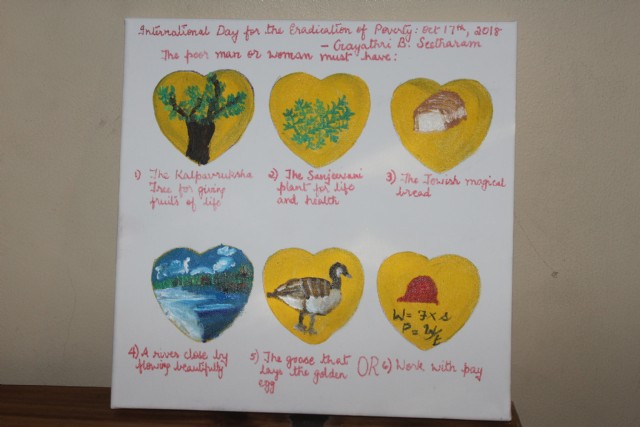 International Day for the Eradication of Poverty: Oct 17th, 2018
- Gayathri B. Seetharam
The poor man or woman must have:
1) The Kalpavruksha
Tree for giving
fruits of life
2) The Sanjeevani
plant for life
and health
3) The Jewish magical
bread
4) A river close by
flowing beautifully
5) The goose that
lays the golden
egg
OR 6) Work with pay
W = F x s
P = W/t